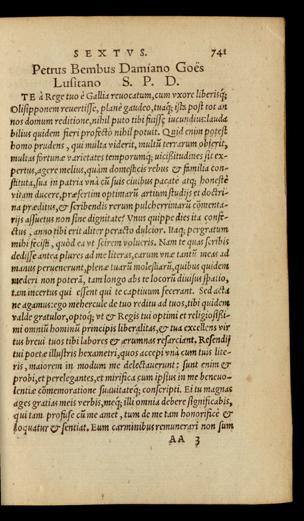 SEXTVS. 741
Petrus Bembus Damiano Goës
Lusitano S. P. D.
TE à Rege tuo è Gallia reuocatum, cum vxore liberisq́;
Olisipponem reuertisse, planè gaudeo, tuaq́; ista post tot an
nos domum reditione, nihil puto tibi fuisse iucundius: lauda
bilius quidem fieri profectò nihil potuit. Quid enim potest
homo prudens, qui multa viderit, multũ terrarum obierit,
multas fortunæ varietates temporumq́; vicißitudines sit ex-
pertus, agere melius, quàm domesticis rebus & familia con-
stituta, sua in patria vnà cũ suis ciuibus pacatè atq; honestè
vitam ducere, præsertim optimarũ artium studijs et doctri-
na præditus, & scribendis rerum pulcherrimarũ cõmenta-
rijs assuetus non sine dignitate? Vnus quippe dies ita confe-
ctus, anno tibi erit aliter peracto dulcior. Itaq; pergratum
mihi fecisti, quòd ea vt scirem volueris. Nam te quas scribis
dedisse antea plures ad me literas, earum vnæ tantũ meas ad
manus peruenerunt, plenæ tuarũ molestiarũ, quibus quidem
mederi non poterã, tam longo abs te locorũ diuisus spatio,
tam incertus qui essent qui te captiuum fecerant. Sed acta
me agam: ego mehercule de tuo reditu ad tuos, tibi quidem
valde gratulor, optoq; vt & Regis tui optimi et religiosißi-
mi omniũ hominũ principis liberalitas, & tua excellens vir
tus breui tuos tibi labores & ærumnas resarciant. Resendij
tui poetæ illustris hexametri, quos accepi vnà cum tuis lite-
ris, maiorem in modum me delectauerunt: sunt enim &
probi, et perelegantes, et mirifica cum ipsius in me beneuo-
lentiæ cõmemoratione suauitateq́; conscripti. Ei tu magnas
ages gratias meis verbis, meq́; illi omnia debere significabis,
qui tam profuse cũ me amet, tum de me tam honorificè &
loquatur & sentiat. Eum carminibus remunerari non sum
AA 3